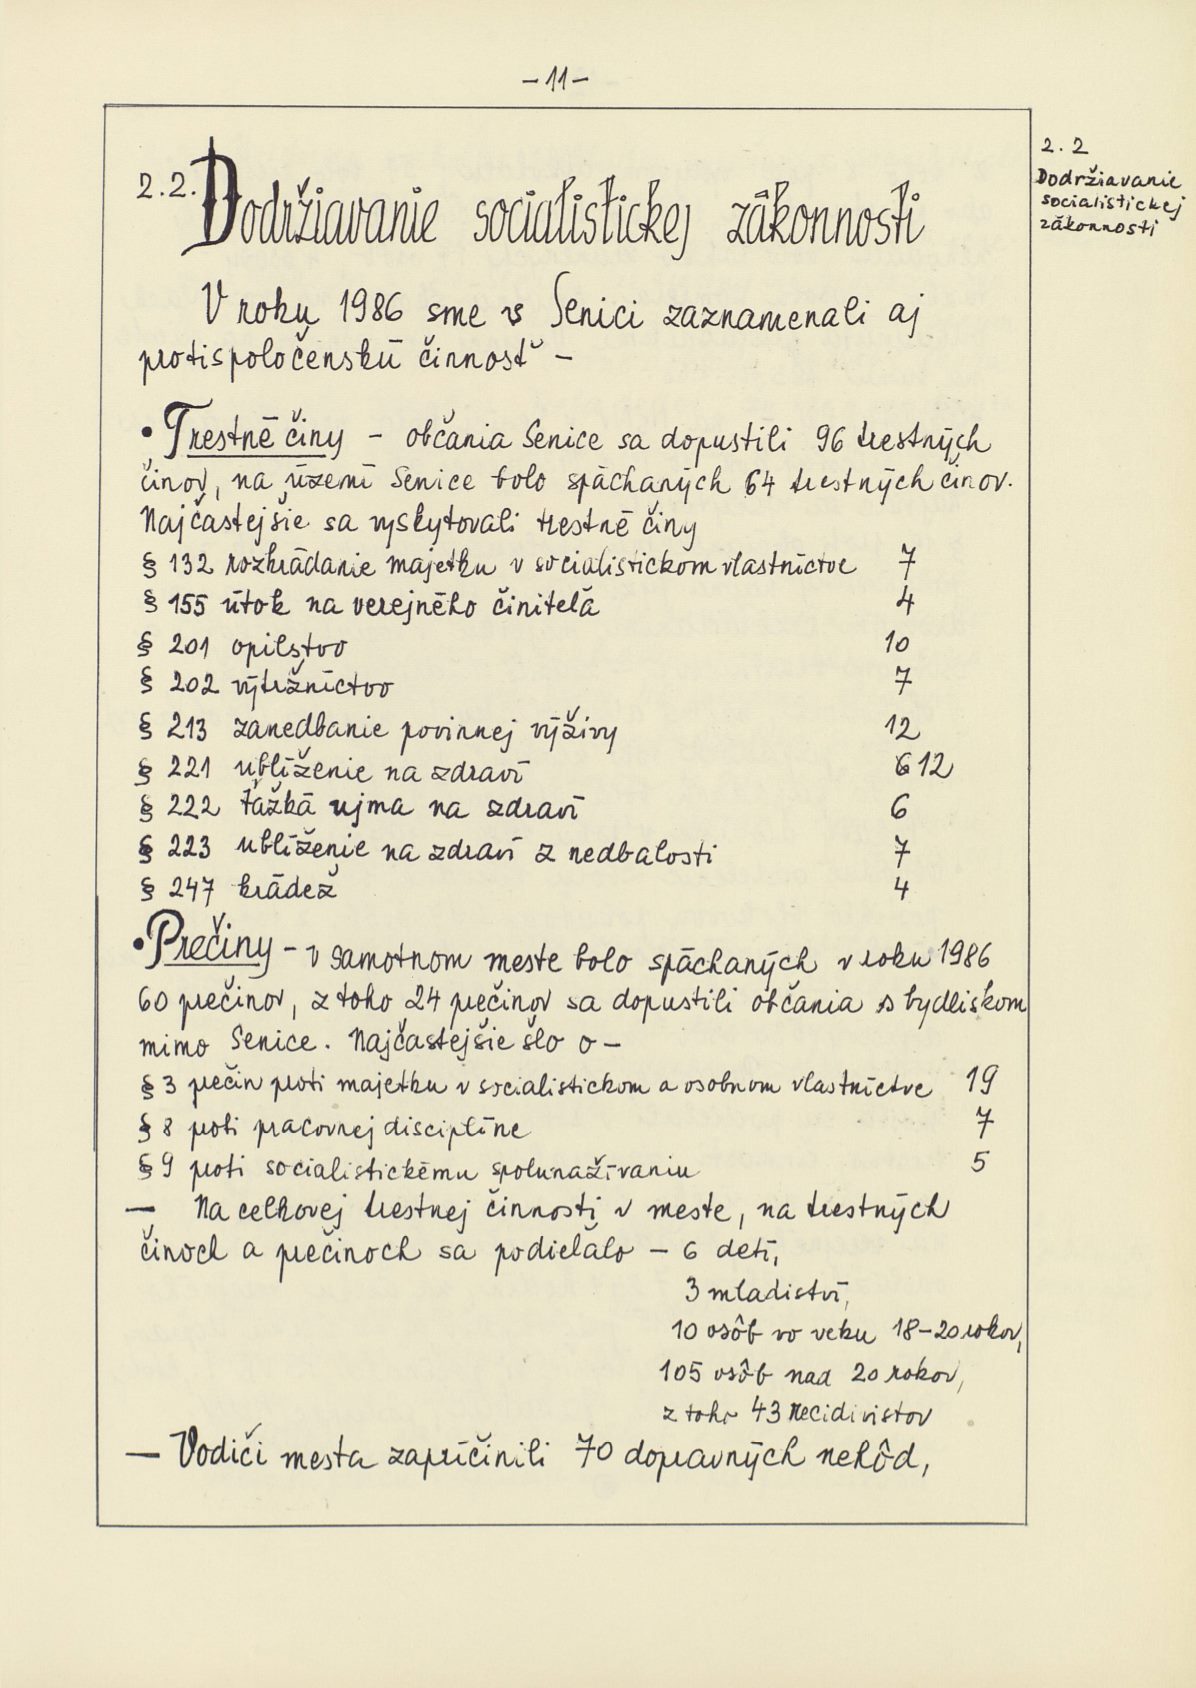 -11-
2.2
Dodržiavanie
socialistickej
zákonnosti
2.2. Dodržiavanie socialistickej zákonnosti
V roku 1986 sme v Senici zaznamenali aj
protispoločenskú činnosť -
• Trestné činy - občania Senice sa dopustili 96 trestných
činov, na území Senice bolo spáchaných 64 trestných činov.
Najčastejšie sa vyskytovali trestné činy
§ 132 rozkrádanie majetku v socialistickom vlastníctve 7
§ 155 útok na verejného činiteľa 4
§ 201 opilstvo 10
§ 202 výtržníctvo 7
§ 213 zanedbanie povinnej výživy 12
§ 221 ublíženie na zdraví 6 12
§ 222 ťažká ujma na zdraví 6
§ 223 ublíženie na zdraví z nedbalosti 7
§ 247 krádež 4
• Prečiny - v samotnom meste bolo spáchaných v roku 1986
60 prečinov, z toho 24 prečinov sa dopustili občania s bydliskom
mimo Senice. Najčastejšie šlo o -
§ 3 prečin proti majetku v socialistickom a osobnom vlastníctve 19
§ 8 proti pracovnej disciplíne 7
§ 9 proti socialistickému spolunažívaniu 5
- Na celkovej trestnej činnosti v meste, na trestných
činoch a prečinoch sa podieľalo - 6 detí,
3 mladiství,
10 osôb vo veku 18-20 rokov,
105 osôb nad 20 rokov,
z toho 43 recidivistov
- Vodiči mesta zapríčinili 70 dopravných nehôd,